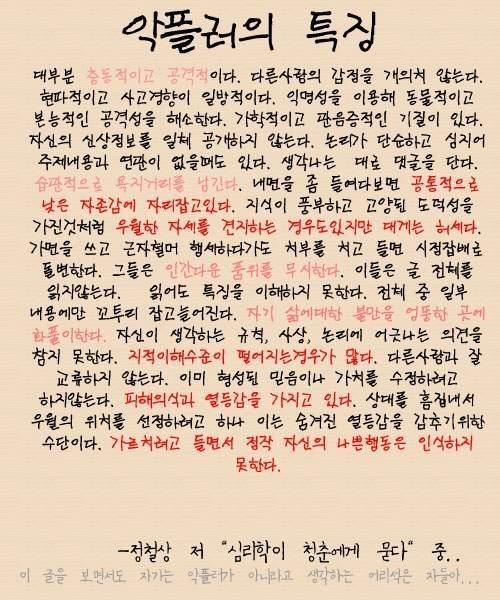 악플러의 특징
대부분 충동적이고 공격적이다. 다른사람의 감정을 개의치 않는다.
현파적이고 사고경향이 일방적이다. 익명성을 이용해 동물적이고
본능적인 공격성을 해소한다. 가학적이고 관음증적인 기질이 있다.
자신의 신상정보를 일체 공개하지 않는다. 논리가 단순하고 심지어
주제내용과 연관이 없을때도 있다. 생각나는 대로 댓글을 단다.
습관적으로 욕지거리를 남긴다. 내면을 좀 들여다보면 공통적으로
낮은 자존감에 자리잡고있다. 지식이 풍부하고 고양된 도덕성을
가진것처럼 우월한 자세를 견지하는 경우도있지만 대게는 허세다.
가면을 쓰고 군자철머 행세하다가도 치부를 치고 들면 시정잡배로
돌변한다. 그들은 인간다운 품위를 무시한다. 이들은 글 전체를
읽지않는다. 읽어도 특징을 이해하지 못한다. 전체 중 일부
내용에만 꼬투리 잡고늘어진다. 자기 삶에대한 불만을 엉뚱한 곳에
화풀이한다. 자신이 생각하는 규칙, 사상, 논리에 어긋나는 의견을
참지 못한다. 지적이해수준이 떨어지는경우가 많다. 다른사람과 잘
교류하지 않는다. 이미 형성된 믿음이나 가치를 수정하려고
하지않는다. 피해의식과 열등감을 가지고 있다. 상대를 흠집내서
우월의 위치를 선정하려고 하나 이는 숨겨진 열등감을 감추기위한
수단이다. 가르쳐려고 들면서 정작 자신의 나쁜행동은 인식하지
못한다.
-정철상 저 "심리학이 청춘에게 묻다" 중..
이 글을 보면서도 자기는 악플러가 아니라고 생각하는 어리석은 자들아...